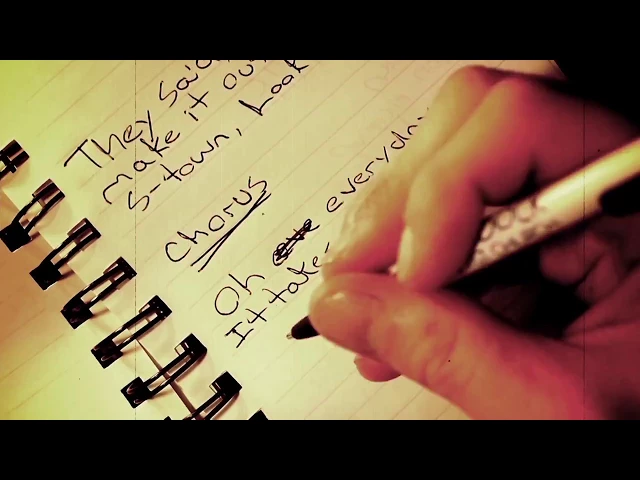 They said
make it out
S-town, Look
Chorus
Oh everyday
It take